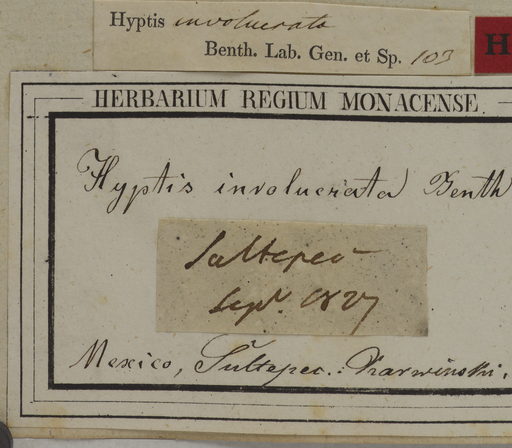 Hyptis involucrata
Benth. Lab. Gen. et Sp. 103
H
HERBARIUM REGIUM MONACENSE.
Hyptis involucrata Benth
Sultepec
Sept. 1827
Mexico, Sultepec.: Karwinski.